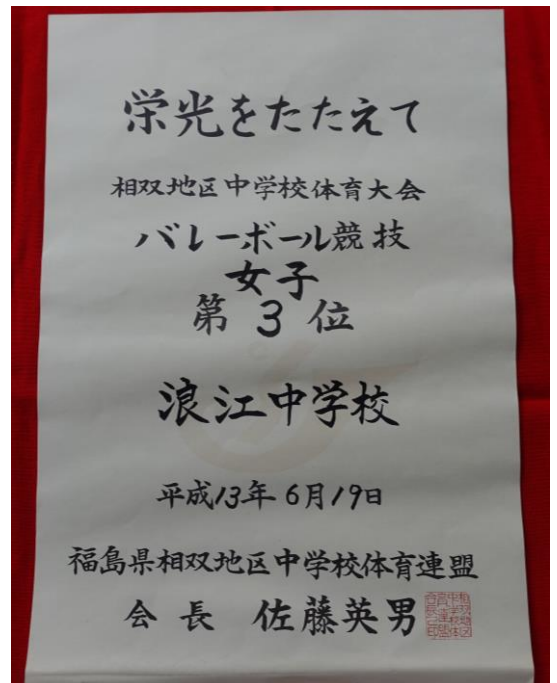 栄光をたたえて
相双地区中学校体育大会
バレーボール競技
女子
第3位
浪江中学校
平成13年6月19日
福島県相双地区中学校体育連盟
会長 佐藤英男